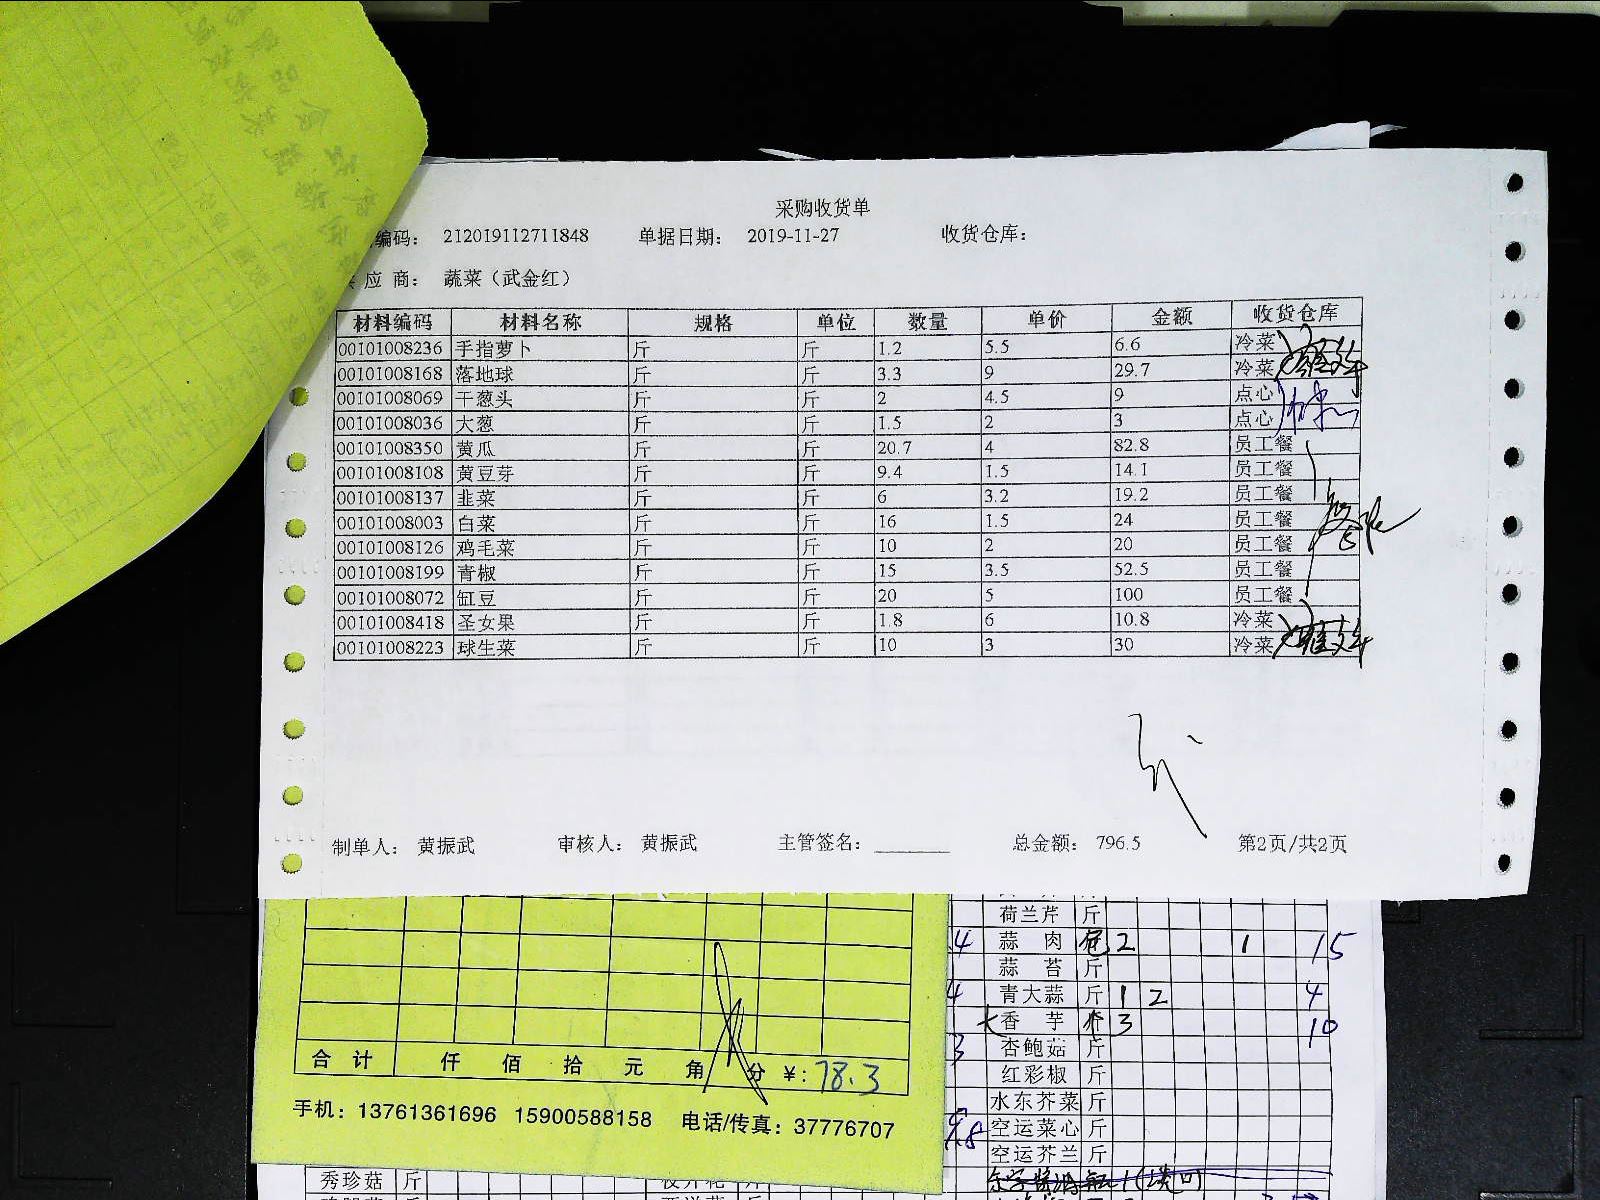 采购收货单
编码： 212019112711848 单据日期： 2019-11-27 收货仓库：
应 商： 蔬菜（武金红）
材料编码 材料名称 规格 单位 数量 单价 金额 收货仓库
00101008236 手指萝卜 斤 斤 1.2 5.5 6.6 冷菜
00101008168 落地球 斤 斤 3.3 9 29.7 冷菜
00101008069 干葱头 斤 斤 2 4.5 9 点心
00101008036 大葱 斤 斤 1.5 2 3 点心
00101008350 黄瓜 斤 斤 20.7 4 82.8 员工餐
00101008108 黄豆芽 斤 斤 9.4 1.5 14.1 员工餐
00101008137 韭菜 斤 斤 6 3.2 19.2 员工餐
00101008003 白菜 斤 斤 16 1.5 24 员工餐
00101008126 鸡毛菜 斤 斤 10 2 20 员工餐
00101008199 青椒 斤 斤 15 3.5 52.5 员工餐
00101008072 缸豆 斤 斤 20 5 100 员工餐
00101008418 圣女果 斤 斤 1.8 6 10.8 冷菜
00101008223 球生菜 斤 斤 10 3 30 冷菜
制单人： 黄振武 审核人： 黄振武 主管签名： 总金额： 796.5 第2页/共2页
荷兰芹 斤
4 蒜肉 包 2 1 15
蒜苔 斤
4 青大蒜 斤 1 2 4
香芋 3 10
3 杏鲍菇 斤
红彩椒 斤
水东芥菜 斤
空运菜心 斤
空运芥兰 斤
合计 仟 佰 拾 元 角 分 ¥: 78.3
手机：13761361696 15900588158 电话/传真：37776707
秀珍菇 斤